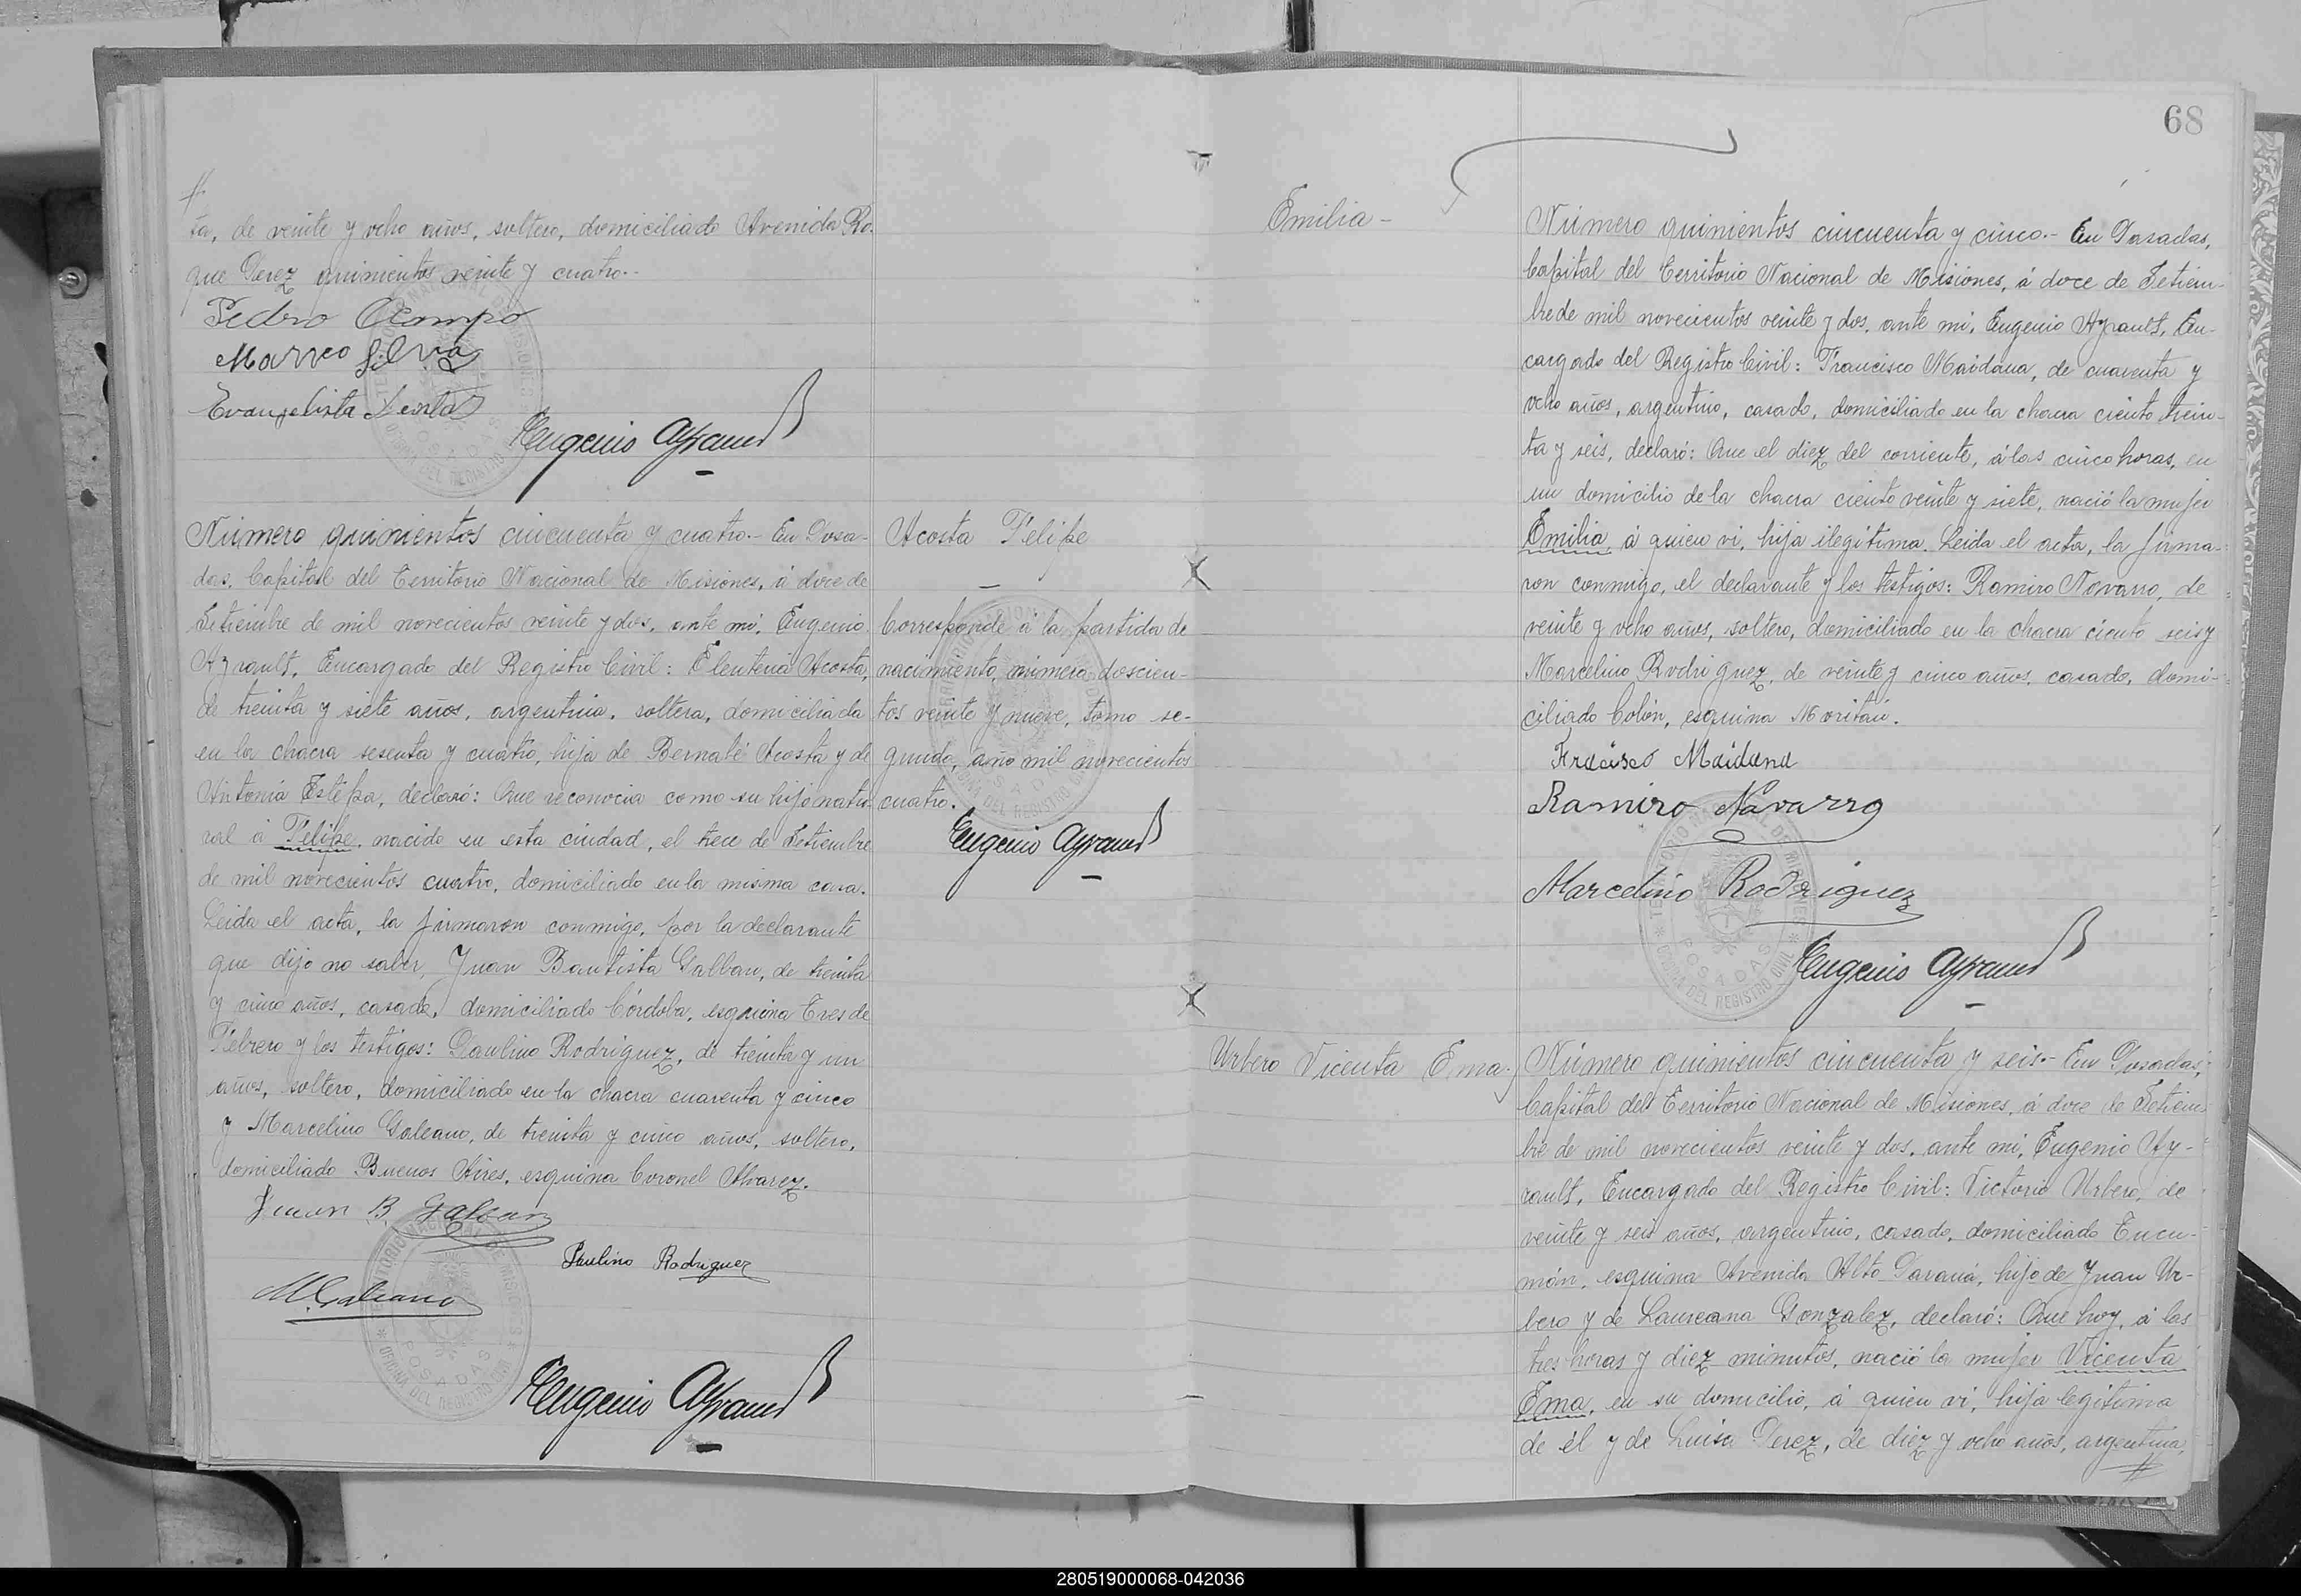 #
ta, de veinte y ocho años, soltero, domiciliado Avenida Ro-
que Perez quinientos veinte y cuatro.-
Pedro Ocampo
Marco Silva
Evangelista
Eugenio Ayrault
Número quinientos cincuenta y cuatro.- En Posa-
das, Capital del Territorio Nacional de Misiones, á doce de
Setiembre de mil novecientos veinte y dos, ante mí, Eugenio
Ayrault, Encargado del Registro Civil: Eleuteria Acosta,
de treinta y siete años, argentina, soltera, domiciliada
en la chacra sesenta y cuatro, hija de Bernabé Acosta y de
Antonia Estepa, declaró: Que reconocia como su hijo natu-
ral á Felipe, nacido en esta ciudad, el trece de Setiembre
de mil novecientos cuatro, domiciliado en la misma casa.
Leida el acta, la firmaron conmigo, por la declarante
que dijo no saber, Juan Bautista Galban, de treinta
y cinco años, casado, domiciliado Córdoba, esquina Tres de
Febrero y los testigos: Paulino Rodriguez, de treinta y un
años, soltero, domiciliado en la chacra cuarenta y cinco
y Marcelino Galeano, de treinta y cinco años, soltero,
domiciliado Buenos Aires, esquina Coronel Alvarez.
Juan B. Galban
Paulino Rodriguez
M. Galeano
Eugenio Ayrault
Acosta Felipe
Corresponde á la partida de
nacimiento, número doscien-
tos veinte y nueve, tomo se-
gundo, año mil novecientos
cuatro.
Eugenio Ayrault
68
Emilia -
Número quinientos cincuenta y cinco.- En Posadas,
Capital del Territorio Nacional de Misiones, á doce de Setiem-
bre de mil novecientos veinte y dos, ante mí, Eugenio Ayrault, En-
cargado del Registro Civil: Francisco Maidana, de cuarenta y
ocho años, argentino, casado, domiciliado en la chacra ciento trein-
ta y seis, declaró: Que el diez del corriente, á las cinco horas, en
un domicilio de la chacra ciento veinte y siete, nació la mujer
Emilia, á quien vi, hija ilegítima. Leida el acta, la firma-
ron conmigo, el declarante y los testigos: Ramiro Navarro, de
veinte y ocho años, soltero, domiciliado en la chacra ciento seis y
Marcelino Rodriguez, de veinte y cinco años, casado, domi-
ciliado Colón, esquina Moritán.
Fracisco Maidana
Ramiro Navarro
Marcelino Rodriguez
Eugenio Ayrault
Urbero Vicenta Ema.
Número quinientos cincuenta y seis.- En Posadas,
Capital del Territorio Nacional de Misiones, á doce de Setiem-
bre de mil novecientos veinte y dos, ante mi, Eugenio Ay-
rault, Encargado del Registro Civil: Victorio Urbero, de
veinte y seis años, argentino, casado, domiciliado Tucu-
mán, esquina Avenida Alto Paraná, hijo de Juan Ur-
bero y de Laureana Gonzalez, declaró: Que hoy, á las
tres horas y diez minutos, nació la mujer Vicenta
Ema, en su domicilio, á quien vi, hija legítima
de él y de Luisa Perez, de diez y ocho años, argentina,
#
280519000068-042036